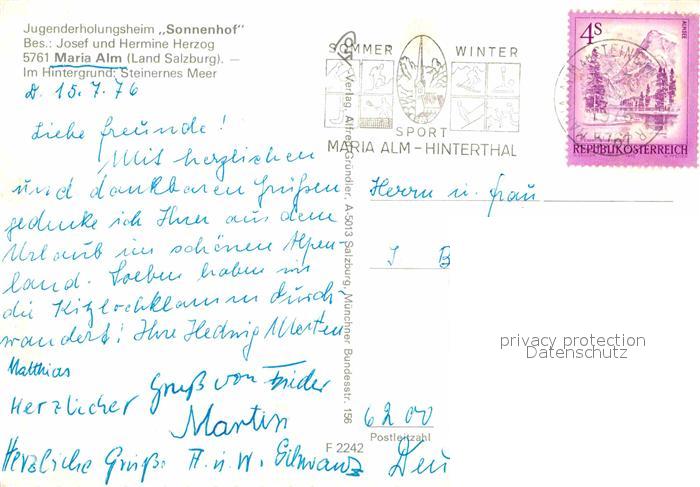 Jugenderholungsheim „Sonnenhof"
Bes.: Josef und Hermine Herzog
5761 Maria Alm (Land Salzburg). —
Im Hintergrund: Steinernes Meer
d. 15.7.76
Liebe Freunde!
Mit herzlichen
und dankbaren Grüßen
gedenke ich Ihrer aus dem
Urlaub im schönen Alpen-
land. Soeben haben wir
die Kitzlochklamm durch-
wandert! Ihre Hedwig Merten
Matthias
Gruß von Frieder
Herzlicher
Martin
Herzliche Grüße A. u. W.
Verlag Alfred Gründler, A-5013 Salzburg, Münchner Bundesstr. 156
SOMMER WINTER
SPORT
MARIA ALM – HINTERTHAL
4S
ALMSEE
REPUBLIK ÖSTERREICH
Herrn u. Frau
J B
privacy protection
Datenschutz
6200
Postleitzahl
F 2242